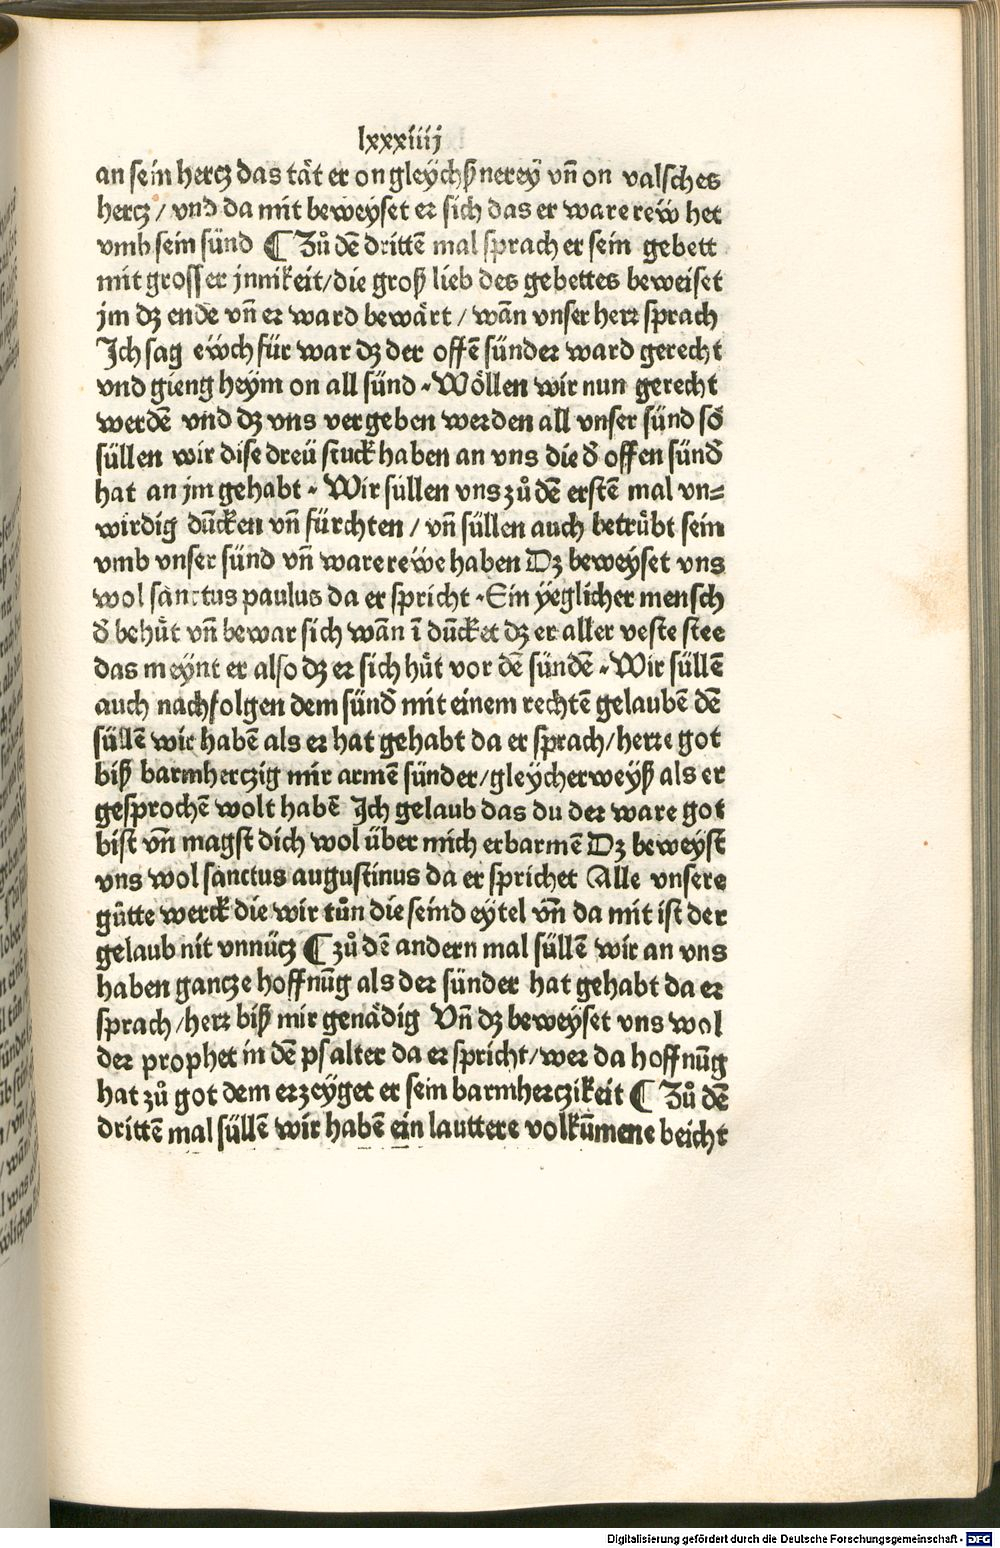 lxxxiiij
an sein hercz das tät er on gleÿchßnereÿ vñ on valsches
hercz / vnd da mit beweyset er sich das er ware rew het
vmb sein sünd ¶ Zů dē drittē mal sprach er sein gebett
mit grosser jnnikeit/die groß lieb des gebettes beweiset
jm dz ende vñ er ward bewärt / wañ vnser herr sprach
Jch sag ewch für war dz der offē sünder ward gerecht
vnd gieng heÿm on all sünd · Wöllen wir nun gerecht
werdē vnd dz vns vergeben werden all vnser sünd sö
süllen wir dise dreü stuck haben an vns die d̄ offen sünd̄
hat an jm gehabt · Wir süllen vns zů dē erstē mal vn=
wirdig dūcken vñ fürchten / vñ süllen auch betrübt sein
vmb vnser sünd vñ ware rewe haben Dz beweyset vns
wol sanctus paulus da er spricht · Ein ÿeglicher mensch
d̄ behüt vñ bewar sich wañ ī dūcket dz er aller veste stee
das meÿnt er also dz er sich hüt vor dē sündē · Wir süllē
auch nachfolgen dem sünd̄ mit einem rechtē gelaubē dē
süllē wir habē als er hat gehabt da er sprach/herre got
biß barmherczig mir armē sünder/gleÿcherweÿß als er
gesprochē wolt habē Jch gelaub das du der ware got
bist vñ magst dich wol über mich erbarmē Dz beweyst
vns wol sanctus augustinus da er sprichet Alle vnsere
gůtte werck die wir tůn die seind eytel vñ da mit ist der
gelaub nit vnnücz ¶ zů dē andern mal süllē wir an vns
haben gancze hoffnūg als der sünder hat gehabt da er
sprach/herr biß mir genädig Vñ dz beweÿset vns wol
der prophet in dē psalter da er spricht/wer da hoffnūg
hat zů got dem erzeyget er sein barmherczikeit ¶ Zů dē
drittē mal süllē wir habē ein lauttere volkūmene beicht
Digitalisierung gefördert durch die Deutsche Forschungsgemeinschaft - DFG